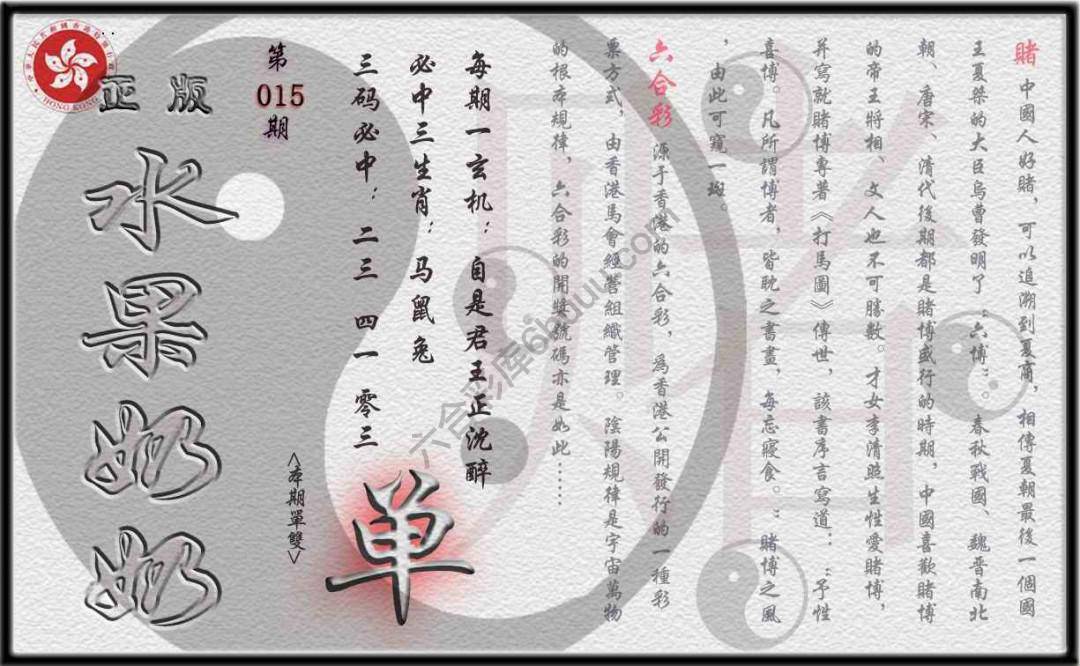 賭 中國人好賭，可以追溯到夏商，相傳夏朝最後一個國
王夏桀的大臣烏曹發明了“六博”。春秋戰國、魏晉南北
朝、唐宋、清代後期都是賭博盛行的時期，中國喜歡賭博
的帝王將相、文人也不可勝數。才女李清照生性愛賭博，
并寫就賭博專著《打馬圖》傳世，該書序言寫道：“予性
喜博。凡所謂博者，皆耽之書晝，每忘寢食。”賭博之風
，由此可窺一斑。
六合彩 源于香港的六合彩，爲香港公開發行的一種彩
票方式，由香港馬會經營組織管理。陰陽規律是宇宙萬物
的根本規律，六合彩的開獎號碼亦是如此……
每期一玄机：自是君王正沈醉
必中三生肖：马鼠兔
三码必中：二三 四一 零三
第
015
期
<本期單雙>
单
正版
水果奶奶
HONG KONG
六合彩库6huuu.com